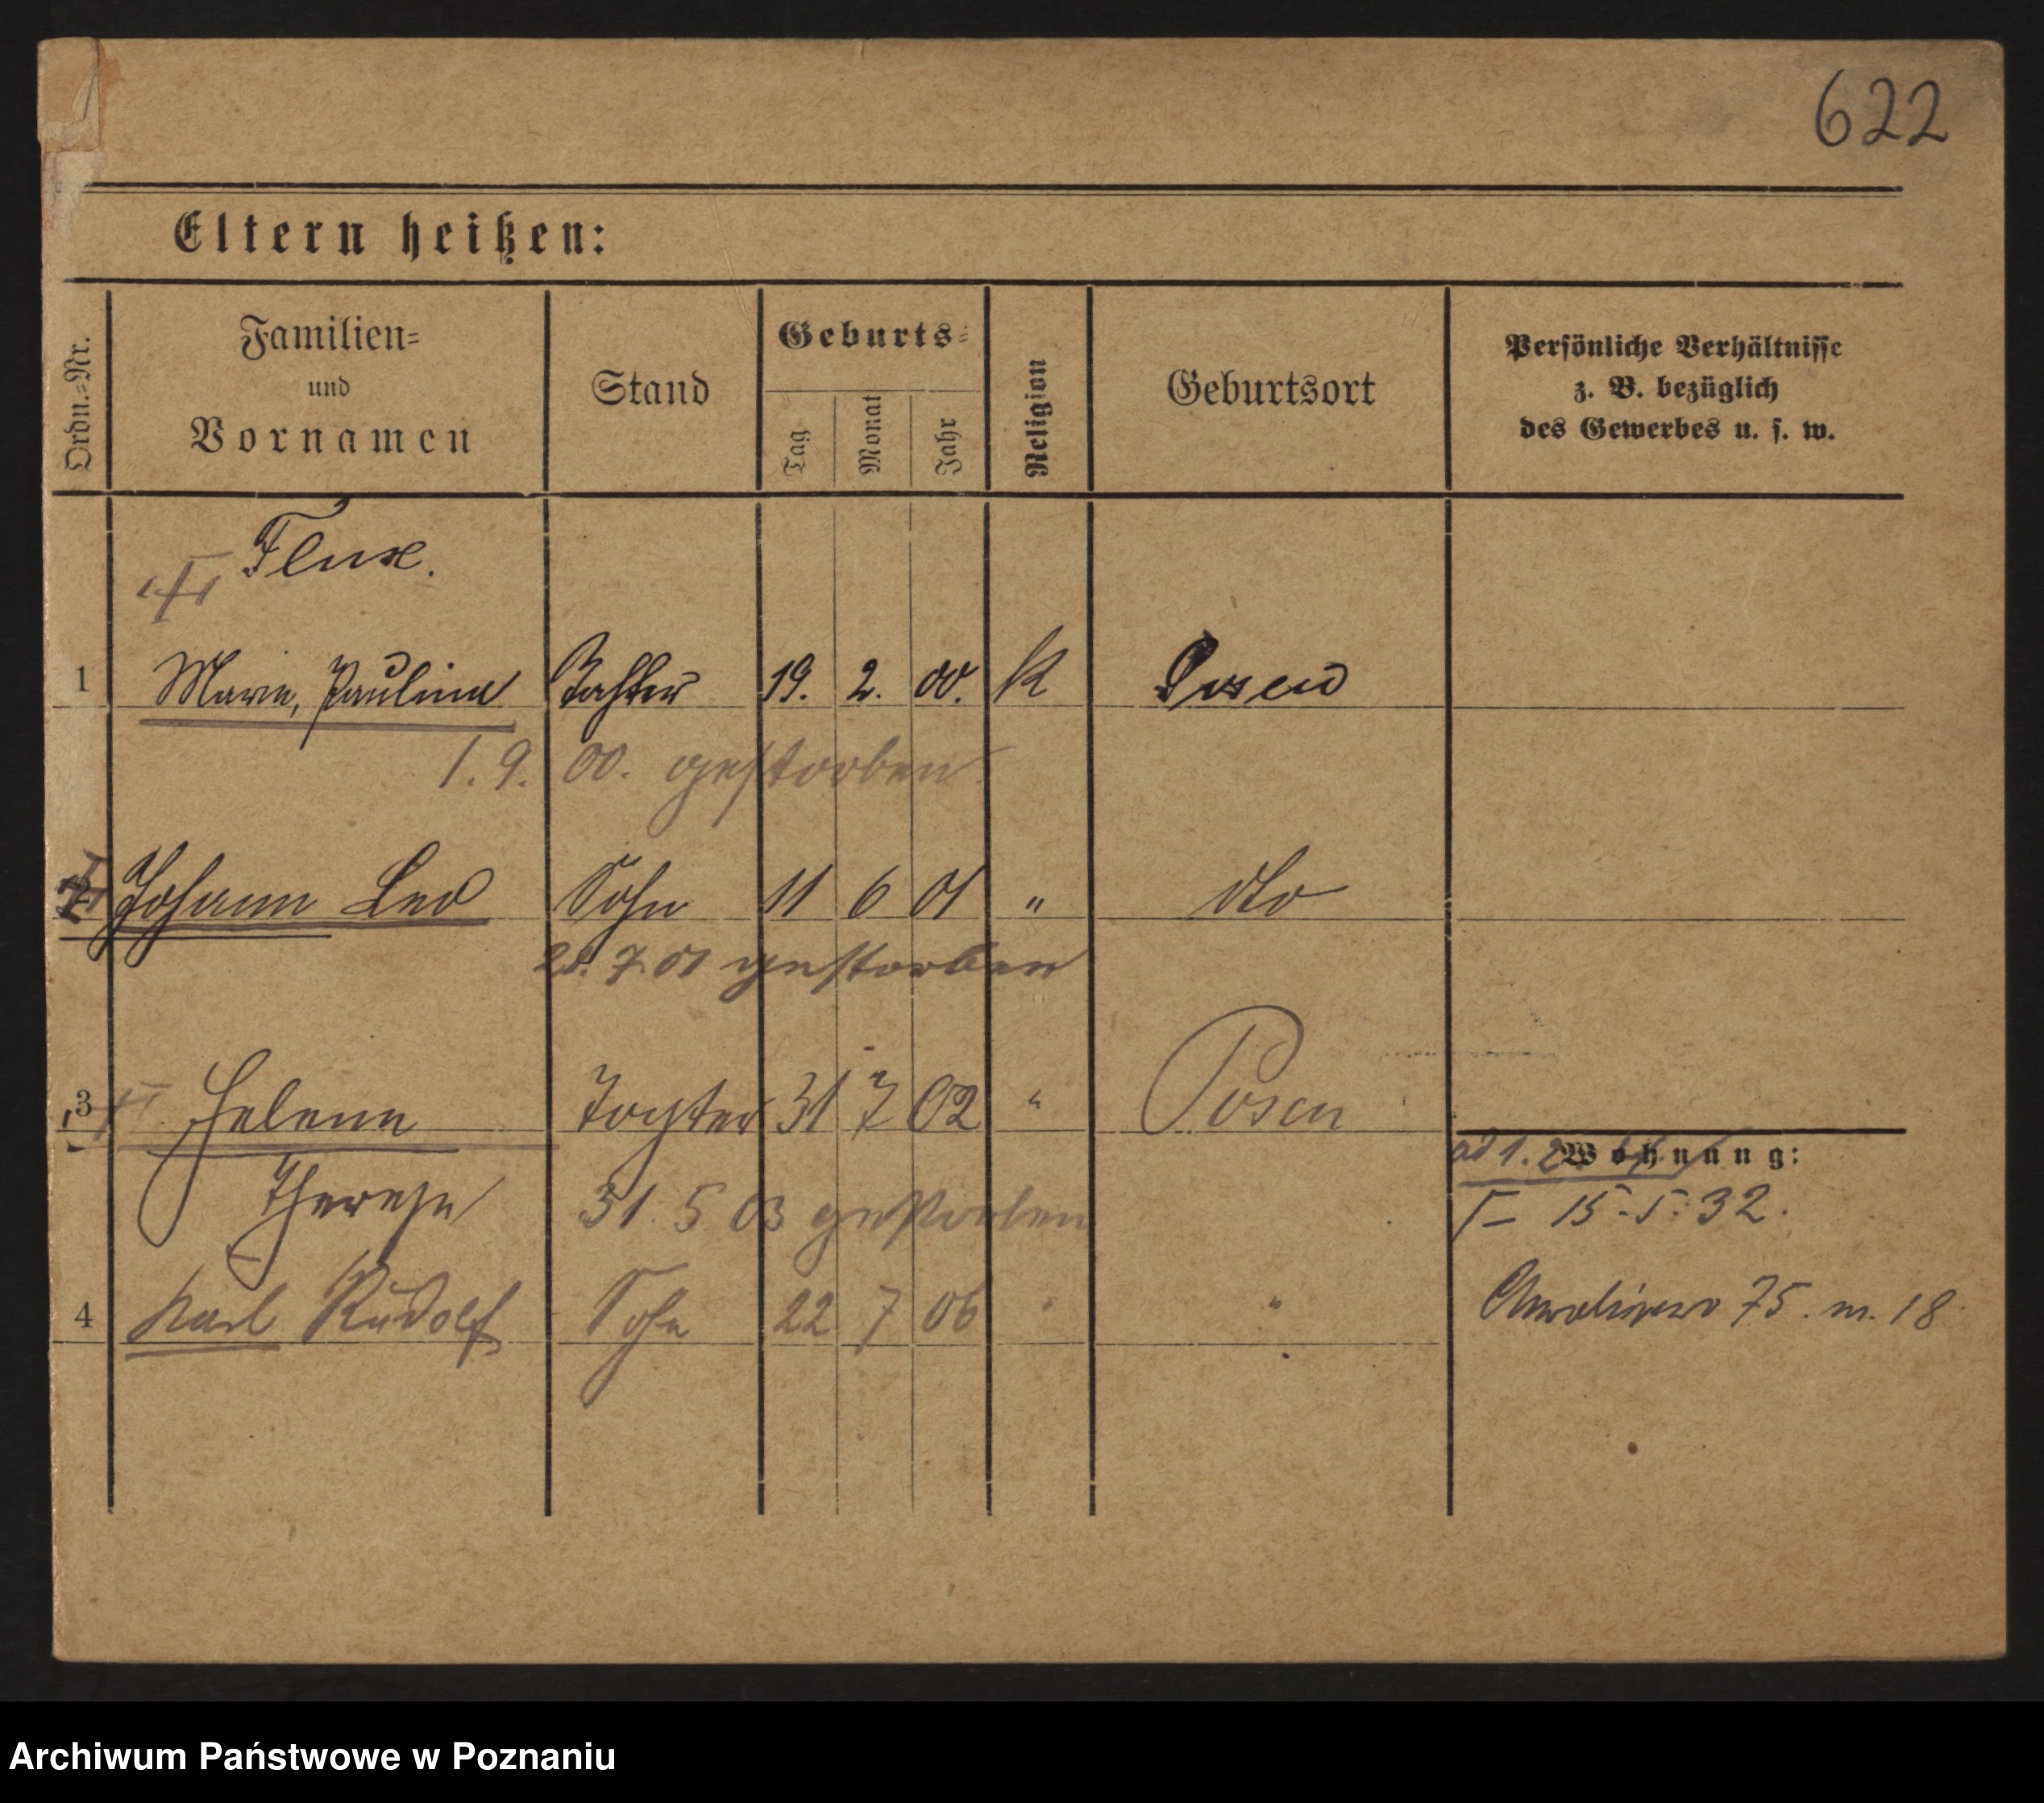 622
Eltern heißen:
Ordn.=Nr.
Familien=
und
Vornamen
Stand
Geburts=
Tag
Monat
Jahr
Religion
Geburtsort
Persönliche Verhältnisse
z. B. bezüglich
des Gewerbes u. s. w.
1 Marie, Pauline Tochter 19. 2. 00. K Posen
1. 9. 00. gestorben
2 Johann Leo Sohn 11 6 01 " dto
7 01 gestorben
3 Helene Tochter 31 7 02 " Posen
Wohnung:
ad 1.
Therese 31. 5 03 gestorben
15. 5. 32.
4 Karl Rudolf Sohn 22 7 06 " "
75. m. 18
Archiwum Państwowe w Poznaniu